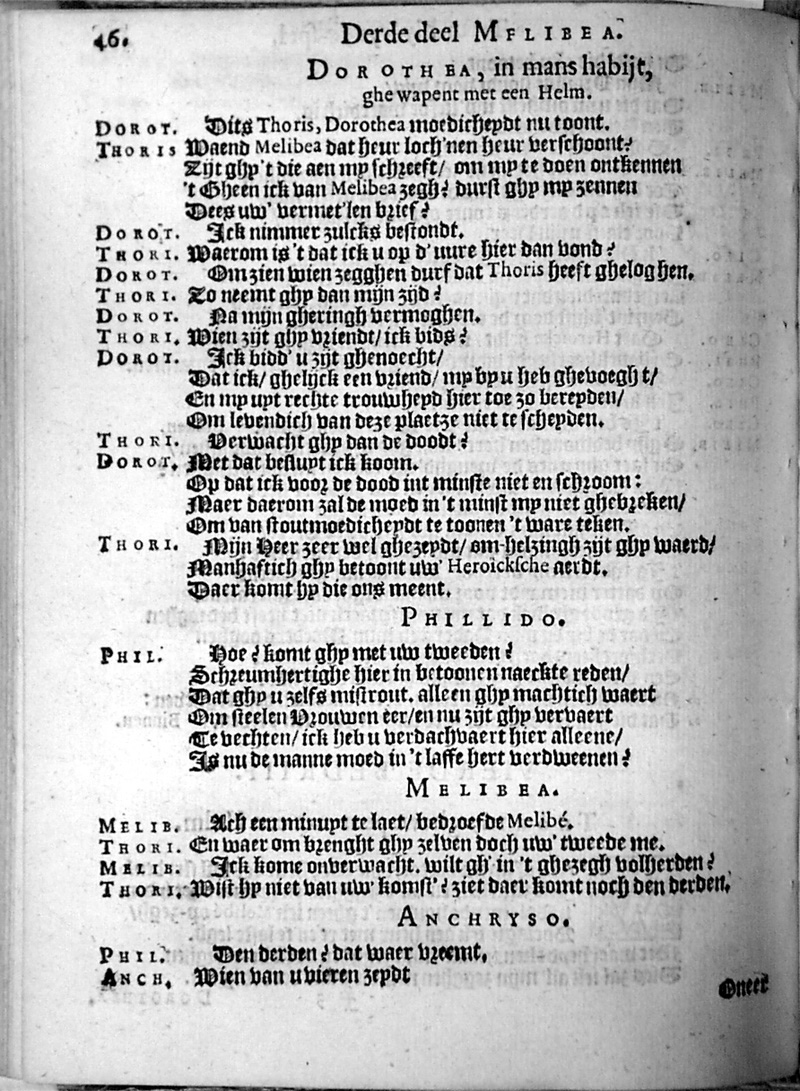 46. Derde deel MELIBEA.
DOROTHEA, in mans habijt,
ghewapent met een Helm.
DOROT. Dits Thoris, Dorothea moedicheydt nu toont.
THORIS Waend Melibea dat heur loch'nen heur verschoont?
Zijt ghy 't die aen my schreeft/ om my te doen ontkennen
't Gheen ick van Melibea zegh? durft ghy my zennen
Dees uw' vermet'len brief?
DOROT. Ick nimmer zulcks bestondt.
THORI. Waerom is 't dat ick u op d' uure hier dan vond?
DOROT. Om zien wien zegghen durf dat Thoris heeft gheloghen.
THORI. Zo neemt ghy dan mijn zijd?
DOROT. Na mijn gheringh vermoghen.
THORI. Wien zijt ghy vriendt/ ick bids?
DOROT. Ick bidd' u zijt ghenoecht/
Dat ick/ ghelijck een vriend/ my by u heb ghevoeght/
En my uyt rechte trouwheyd hier toe zo bereyden/
Om levendich van deze plaetze niet te scheyden.
THORI. Verwacht ghy dan de doodt?
DOROT. Met dat besluyt ick koom.
Op dat ick voor de dood int minste niet en schroom:
Maer daerom zal de moed in 't minst my niet ghebreken/
Om van stoutmoedicheydt te toonen 't ware teken.
THORI. Mijn Heer zeer wel ghezeydt/ om-helzingh zijt ghy waerd/
Manhaftich ghy betoont uw' Heroicksche aerdt.
Daer komt hy die ons meent.
PHILLIDO.
PHIL. Hoe? komt ghy met uw tweeden?
Schreumhertighe hier in betoonen naeckte reden/
Dat ghy u zelfs mistrout. alleen ghy machtich waert
Om steelen Vrouwen eer/ en nu zijt ghy vervaert
Te vechten/ ick heb u verdachvaert hier alleene/
Is nu de manne moed in 't laffe hert verdweenen?
MELIBEA.
MELIB. Ach een minuyt te laet/ bedroefde Melibé.
THORI. En waer om brenght ghy zelven doch uw' tweede me.
MELIB. Ick kome onverwacht. wilt gh' in 't ghezegh volherden?
THORI. Wist hy niet van uw' komst'? ziet daer komt noch den derden.
ANCHRYSO.
PHIL. Den derden? dat waer vreemt.
ANCH. Wien van u vieren zeydt
Oneer